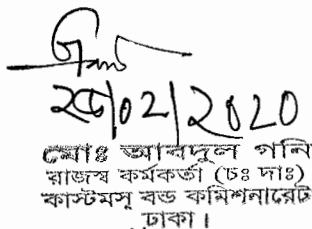 02/2020
মোঃ আবদুল গনি
রাজস্ব কর্মকর্তা (চঃ দাঃ)
কাস্টমস্ বন্ড কমিশনারেট
ঢাকা।